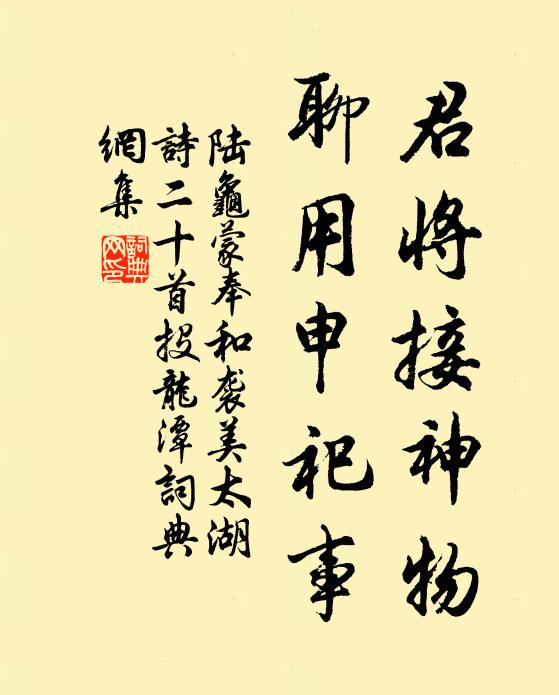 君将接神物
聊用申祀事
陆龜蒙奉和袭美太湖
詩二十首投龍潭詞典
網集
詞典網印